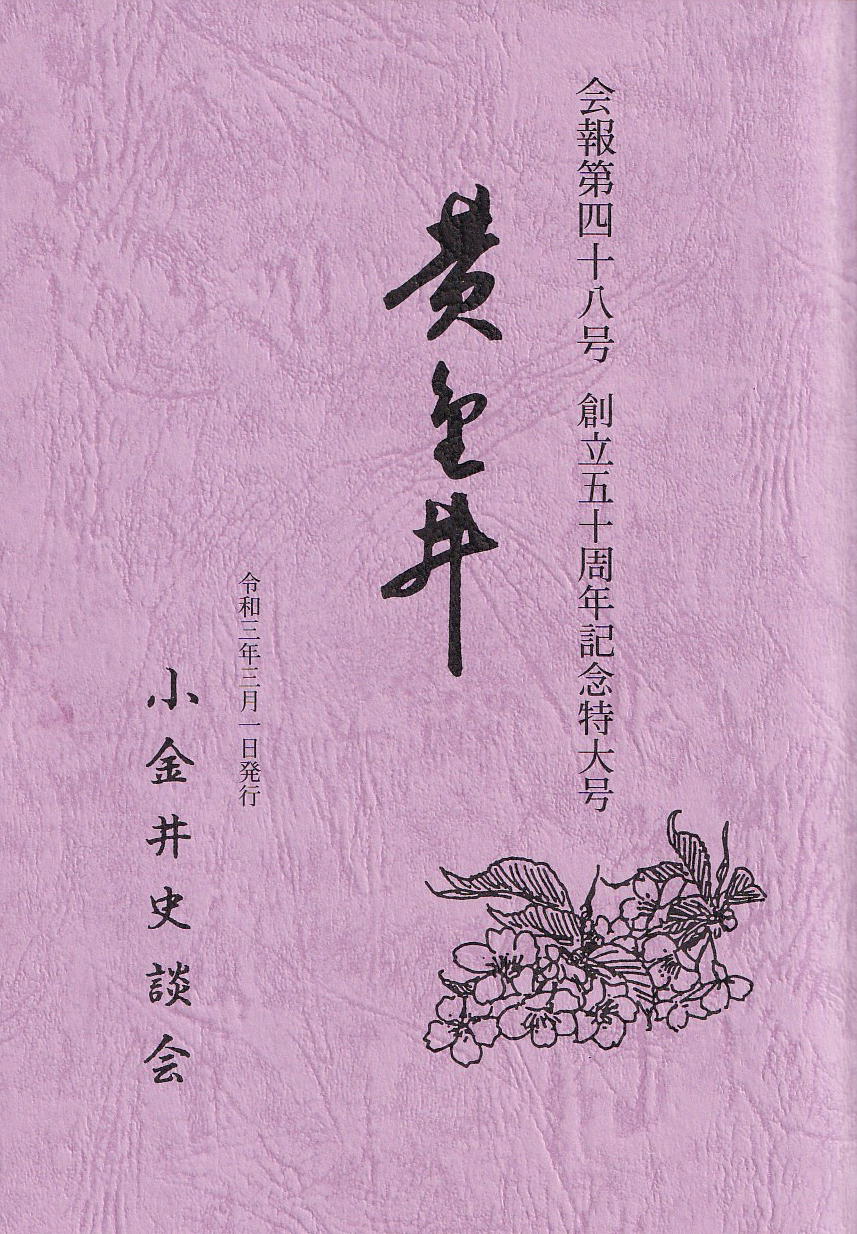 会報第四十八号　創立五十周年記念特大号
黄金井
令和三年三月一日発行
小金井史談会